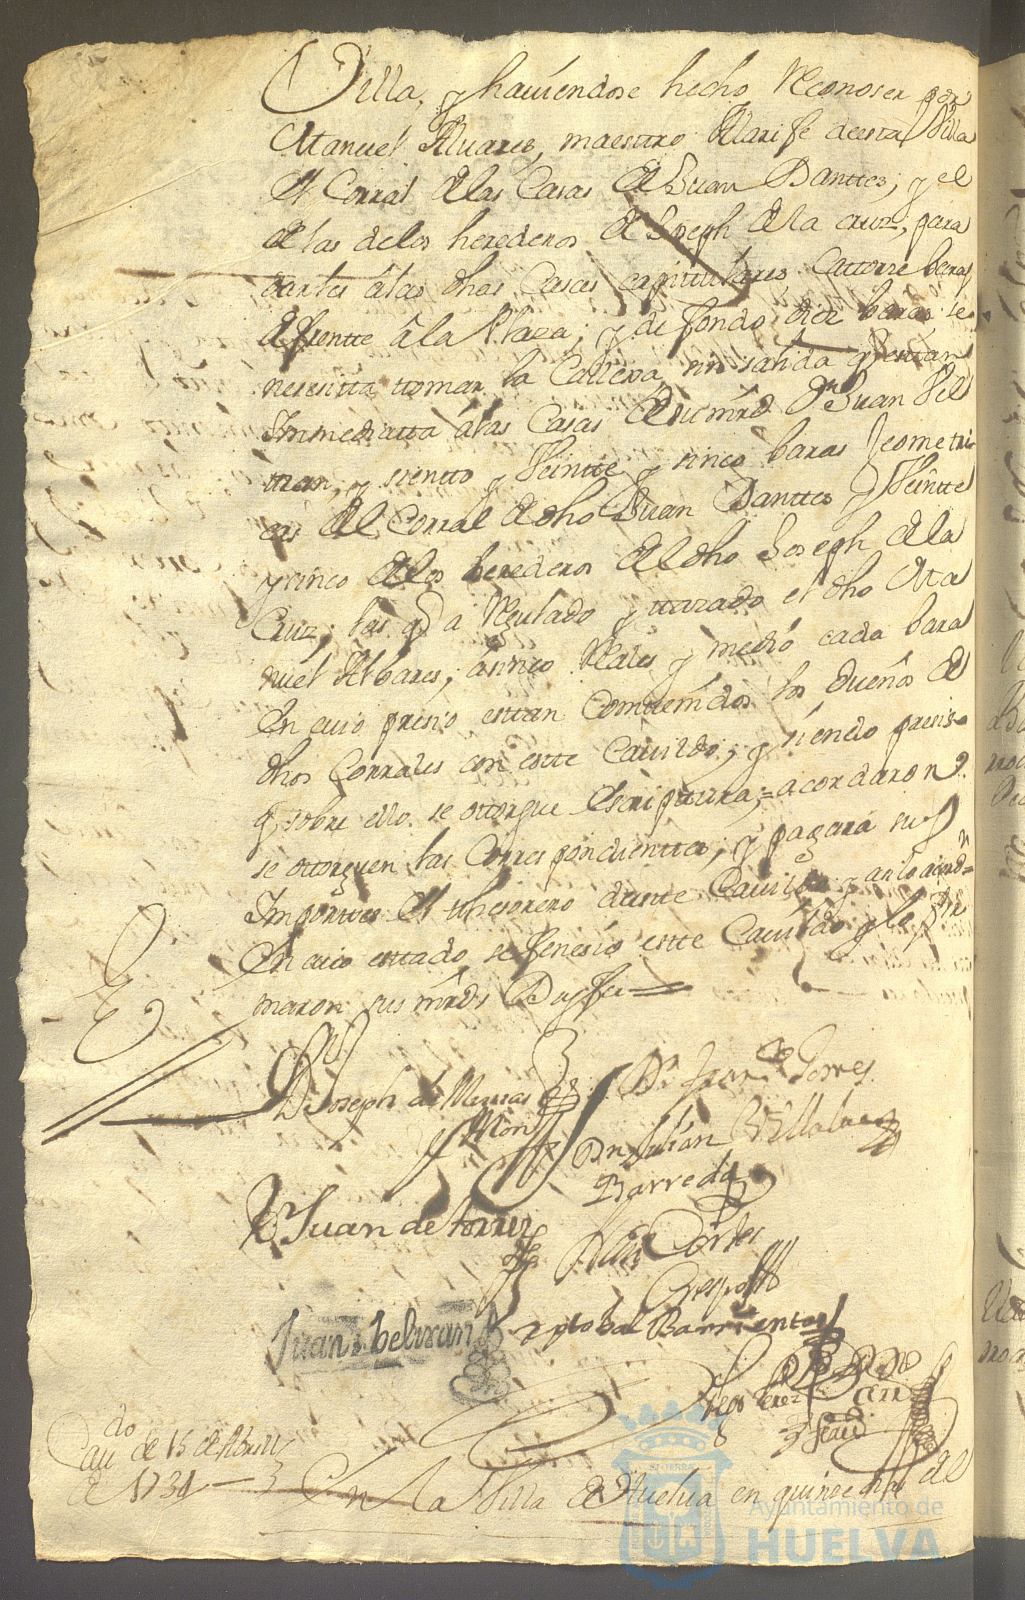 Villa, y haviendose hecho Reconoser por
Manuel Alvares, maestro Alarife de esta Villa
el Corral de las Casas de Juan Banttes, y el
de las de los herederos de Joseph de la cruz, para
darles á las dhas Casas capitulares, Cattorze baras
de frentte á la Plaza; y de fondo diez baras se
nesesitta tomar la Callexa sin salida q estan
Immediatta á las Casas de su mrd Dn Juan Bel
tran, y sientto y Veintte y sinco baras Jeometri
cas del Corral de dho Juan Banttes y Veintte
y sinco de los herederos del dho Joseph de la
Cruz, las qs a Regulado y tazado el dho Ma
nuel Albares, á sinco Reales y medio cada bara
En cuio presio estan Combenidos los dueños de
dhos Corrales con este Cavildo, y siendo preciso
q sobre ello se ottorgue Escriptura, = acordaron
se ottorguen las Correspondientes, y pagará su
Importte el thesorero deste Cavildo y asi lo acordn =
En cuio esttado se fenesio este Cavildo y lo fir
maron sus mrds Doy fee =
Dn Joseph de
Dn Franco Torres
Dn Julián Villalva
Barreda
Juan de torres
Cortes
Crespo
Juan beltran
Xptobal Barrientos
Cavdo de 15 de Abril
de 1731
En la Villa de Huelva en quince dias del
Ayuntamiento de
HUELVA